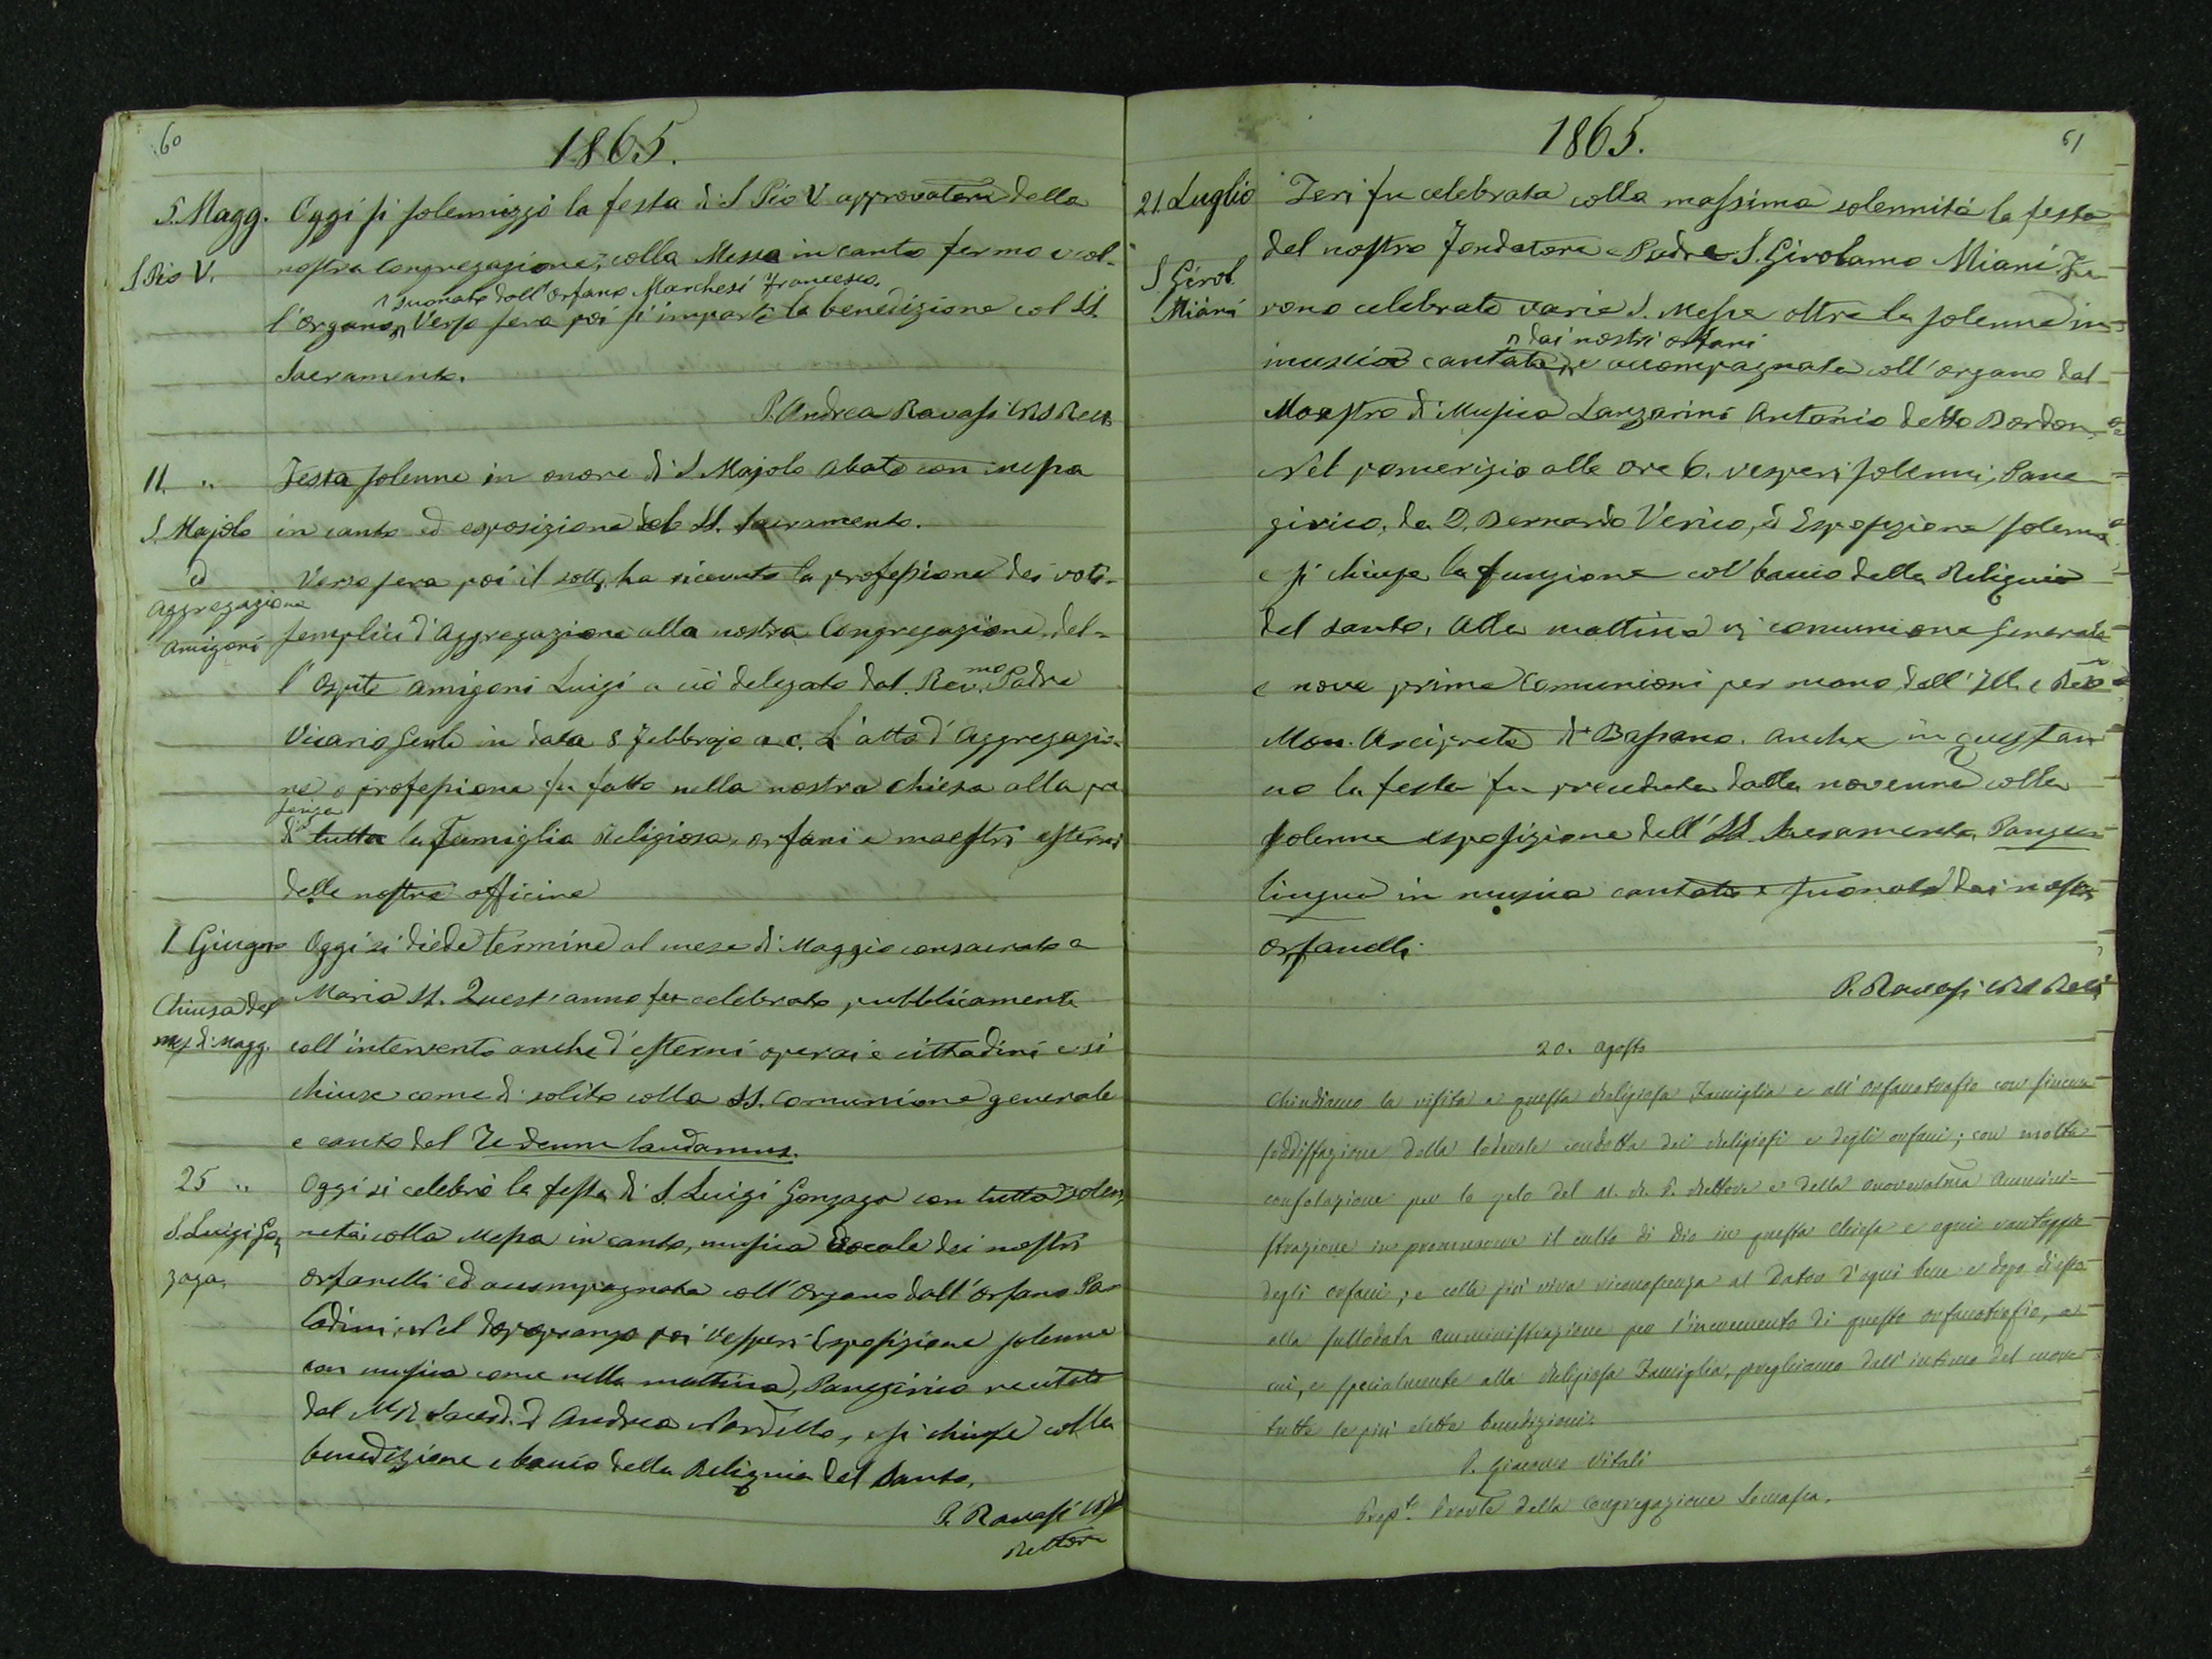 60
1865.
5. Magg. Oggi si solennizzò la festa di S Pio V approvatore della
S Pio V. nostra Congregazione, colla Messa in canto fermo e col-
suonato dall'orfano Marchesi Francesco.
l'organo, Verso sera poi si impartì la benedizione col SS.
Sacramento.
P. Andrea Ravasi CRS Rett.
11. " Festa solenne in onore di S Majolo Abate con messa
S. Majolo in canto ed esposizione del SS. Sacramento.
ed Verso sera poi il sott. ha ricevuto la professione dei voti
Aggregazione
Amigoni semplici d'Aggregazione alla nostra Congregazione del=
l'Ospite Amigoni Luigi a ciò delegato dal Rev.mo Padre
Vicario Genle in data 8 Febbrajo a. c. L'atto d'Aggregazio=
ne o professione fu fatto nella nostra Chiesa alla pre
senza
di tutta la Famiglia Religiosa, orfani e maestri esterni
delle nostre officine
1 Giugno Oggi si diede termine al mese di Maggio consacrato a
Chiusa del Maria SS. Quest'anno fu celebrato pubblicamente
mes di Magg. coll'intervento anche d'esterni operai e cittadini e si
chiuse come di solito colla SS. Comunione generale
e canto del Te deum laudamus.
25 " Oggi si celebrò la festa di S. Luigi Gonzaga con tutta solen
S. Luigi Gon nità colla Messa in canto, musica vocale dei nostri
zaga. orfanelli ed accompagnata coll'Organo dall'orfano Pa
ladini. Nel dopopranzo poi Vesperi Esposizione solenne
con musica come nella mattina, Panegirico recitato
dal M R Sacerd. D Andrea Nardello, e si chiuse colla
benedizione e bacio della Reliquia del Santo.
P. Ravasi CRS
Rettore
61
1865.
21. Luglio Ieri fu celebrata colla massima solennità la festa
S Girol. del nostro Fondatore e Padre S. Girolamo Miani. Fu
Miani rono celebrate varie S. Messe oltre la solenne in
dai nostri orfani
musica cantata, e accompagnata coll'organo dal
Maestro di Musica Lanzarini Antonio detto Bordon.
Nel pomerigio alle ore 6. vesperi solenni, Pane
girico, da D. Bernardo Verico, ed Esposizione solenne
e si chiuse la funzione col bacio della Reliquia
del santo. Alla mattina vi comunione Generale
e nove prime Comunioni per mano dell'Ill. e Rev
Mon. Arciprete di Bassano. Anche in quest'an
no la festa fu preceduta dalla novenna colla
solenne esposizione dell'SS. Sacramento, Pange
lingua in musica cantata e suonata dai nostri
orfanelli.
P. Ravasi CRS Rett
20. Agosto
Chiudiamo la visita a questa Religiosa Famiglia e all'Orfanotrofio con sincera
soddisfazione della lodevole condotta dei Religiosi e degli orfani; con molta
consolazione per lo zelo del M. R. P. Rettore e della onorevolma Ammini=
strazione in promuovere il culto di Dio in questa Chiesa e ogni vantaggio
degli orfani; e colla più viva riconoscenza al Dator d'ogni bene e dopo di esso
alla sullodata Amministrazione per l'incremento di questo orfanotrofio, a
cui, e specialmente alla Religiosa Famiglia, preghiamo dall'intimo del cuore
tutte le più elette benedizioni.
P. Giacomo Vitali
Prep.to Provle della Congregazione Somasca.